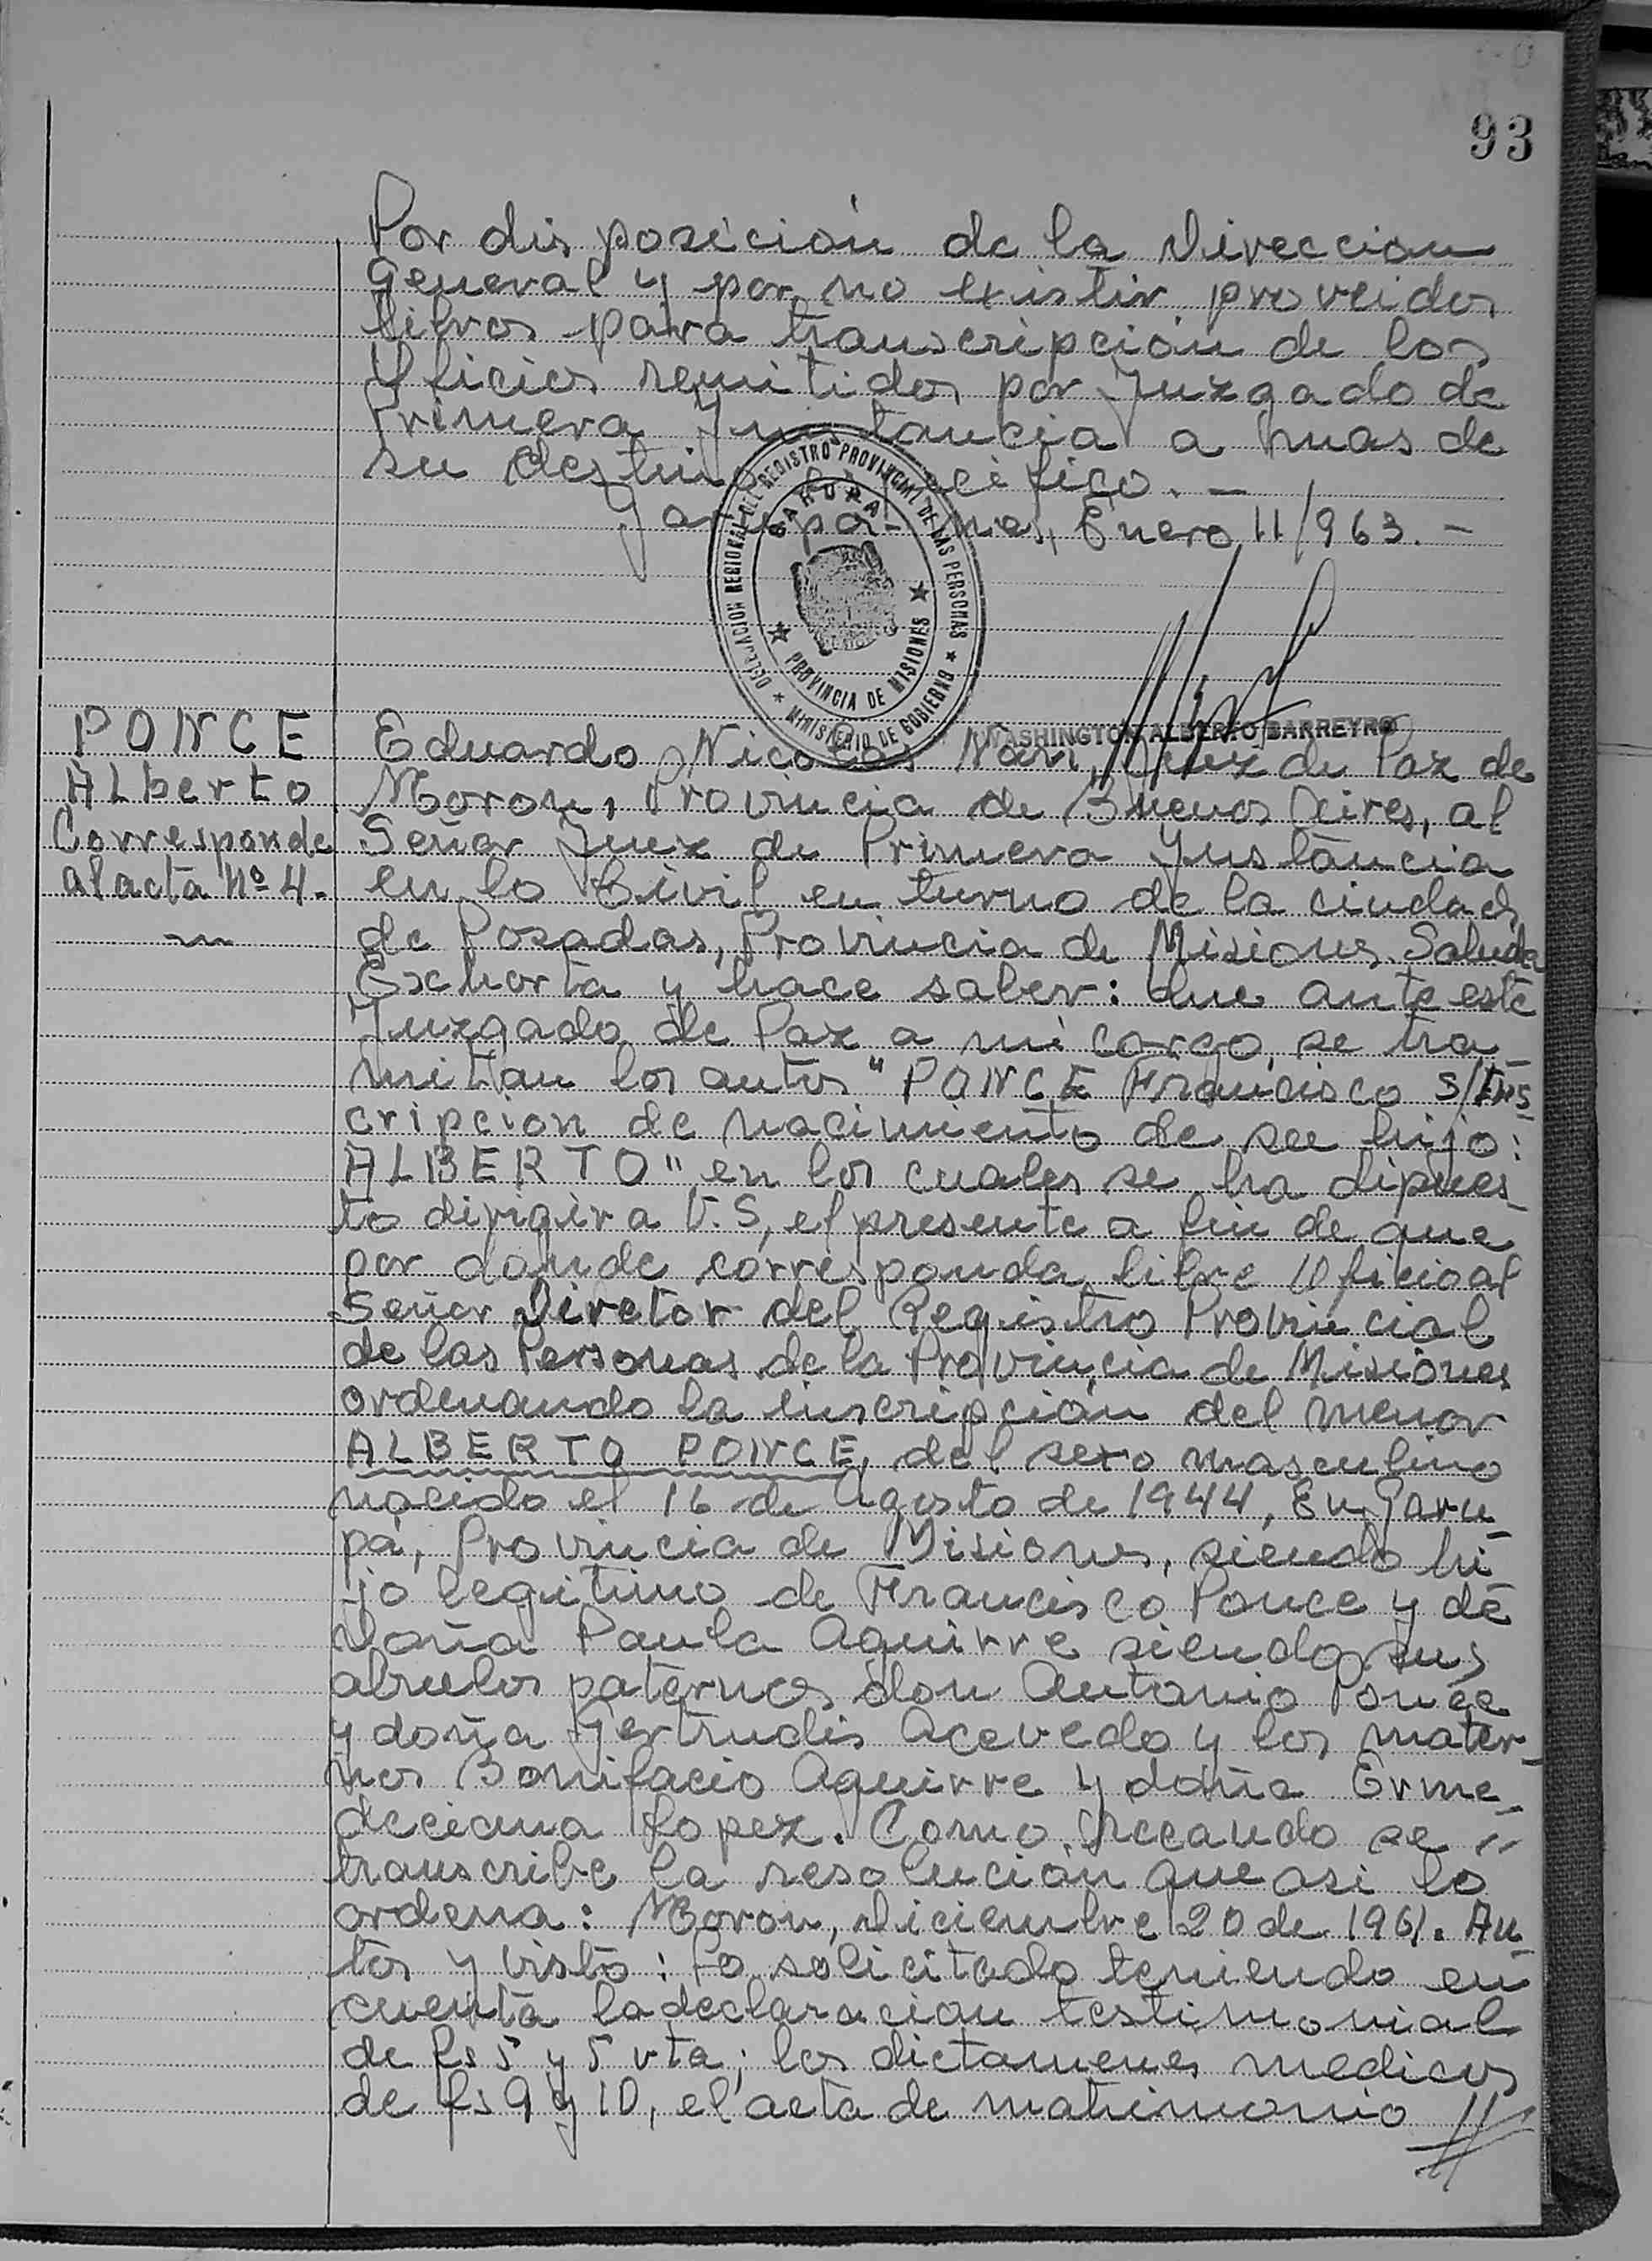 93
Por disposición de la Direccion
General y por no existir proveidos
libros para transcripción de los
Oficios remitidos por Juzgado de
Primera Instancia a mas de
su destino especifico. —
Garupá - Mnes, Enero 11/963. —
DELEGACION REGIONAL DEL REGISTRO PROVINCIAL DE LAS PERSONAS
GARUPA
PROVINCIA DE MISIONES
MINISTERIO DE GOBIERNO
WASHINGTON ALBERTO BARREYRO
PONCE
Alberto
Corresponde
al acta Nº 4.
Eduardo Nicolas Juez de Paz de
Moron, Provincia de Buenos Aires, al
Señor Juez de Primera Instancia
en lo Civil en turno de la ciudad
de Posadas, Provincia de Misiones Saluda
Exhorta y hace saber: Que ante este
Juzgado de Paz a mi cargo, se tra-
mitan los autos "PONCE Francisco S/Ins-
cripcion de nacimiento de su hijo:
ALBERTO" en los cuales se ha dipues-
to dirigir a V.S, el presente a fin de que
por donde corresponda libre Oficio al
Señor Diretor del Registro Provincial
de las Personas de la Provincia de Misiones
ordenando la inscripción del menor
ALBERTO PONCE, del sexo masculino
nacido el 16 de Agosto de 1944, En Garu-
pá, Provincia de Misiones, siendo hi-
jo legitimo de Francisco Ponce y de
Doña Paula Aguirre siendo sus
abuelos paternos don Antonio Ponce
y doña Gertrudis Acevedo y los mater-
nos Bonifacio Aguirre y doña Erme-
deciana Lopez. Como recaudo se "
transcribe la resolución que asi lo
ordena: Moron, Diciembre 20 de 1961. Au-
tos y visto: Lo solicitado teniendo en
cuenta la declaracion testimonial
de fs 5 y 5 vta; los dictamenes medicos
de fs 9 y 10, el acta de matrimonio //